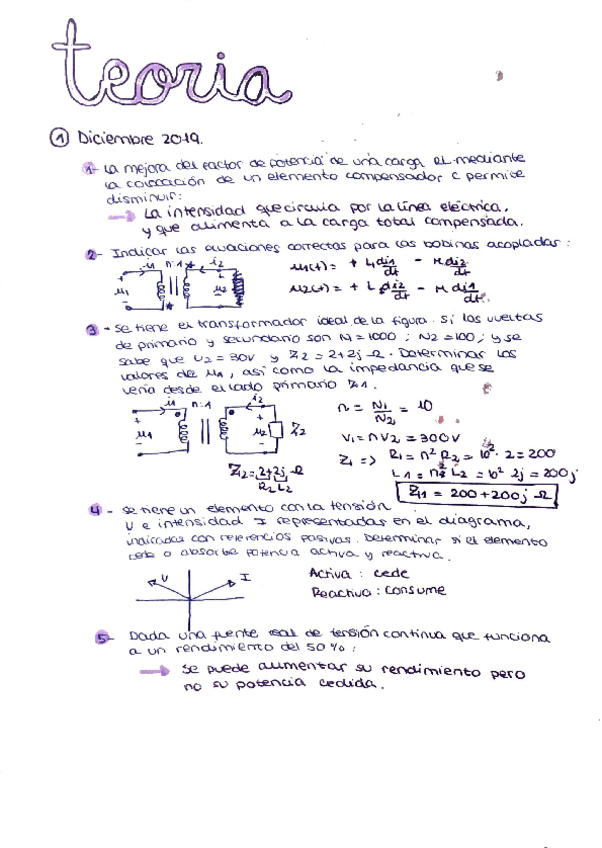 teoria
① Diciembre 2019.
1- La mejora del factor de potencia de una carga RL mediante
la colocación de un elemento compensador C permite
disminuir:
→ La intensidad que circula por la línea eléctrica,
y que alimenta a la carga total compensada.
2- Indicar las ecuaciones correctas para las bobinas acopladas:
i1 n:1 i2
+ u1 - L u2
u1(t) = + L1 di1/dt - M di2/dt
u2(t) = + L2 di2/dt - M di1/dt
3- Se tiene el transformador ideal de la figura. Si las vueltas
de primario y secundario son N1 = 1000; N2 = 100; y se
sabe que U2 = 30V y Z2 = 2+2j Ω. Determinar los
valores de u1, así como la impedancia que se
vería desde el lado primario Z1.
i1 n:1 i2
+ u1 - + u2 - Z2
Z2 = 2+2j Ω
R2 L2
n = N1/N2 = 10
V1 = n V2 = 300 V
Z1 => R1 = n² R2 = 10² · 2 = 200
L1 = n² L2 = 10² 2j = 200j
Z1 = 200 + 200j Ω
4- Se tiene un elemento con la tensión
U e intensidad I representadas en el diagrama,
indicadas con referencias pasivas. Determinar si el elemento
cede o absorbe potencia activa y reactiva.
U I
Activa: cede
Reactiva: consume
5- Dada una fuente real de tensión continua que funciona
a un rendimiento del 50%:
→ Se puede aumentar su rendimiento pero
no su potencia cedida.